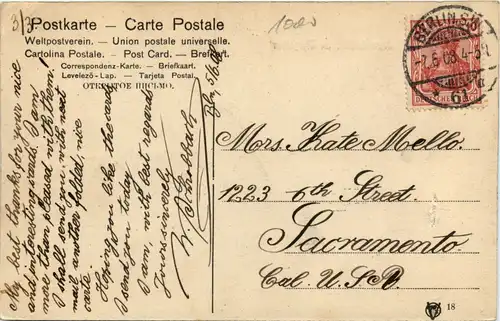 3/3
1000
Postkarte — Carte Postale
Weltpostverein. — Union postale universelle.
Cartolina Postale. — Post Card. — Brefkort.
Correspondenz-Karte. — Briefkaart.
Levelező-Lap. — Tarjeta Postal.
ОТКРЫТОЕ ПИСЬМО.
BERLIN SW
2.6.08. 4-5N.
* 61
DEUTSCHES REICH
Mrs. Kate Mello.
1223 6th Street.
Sacramento
Cal. U.S.A.
18
My best thanks for your nice
and interesting cards. I am
more than pleased with them!
I shall send you with next
mail another folded, nice
carte.
Hoping you like the card
I send you today
I am, with best regard
Yours sincerely